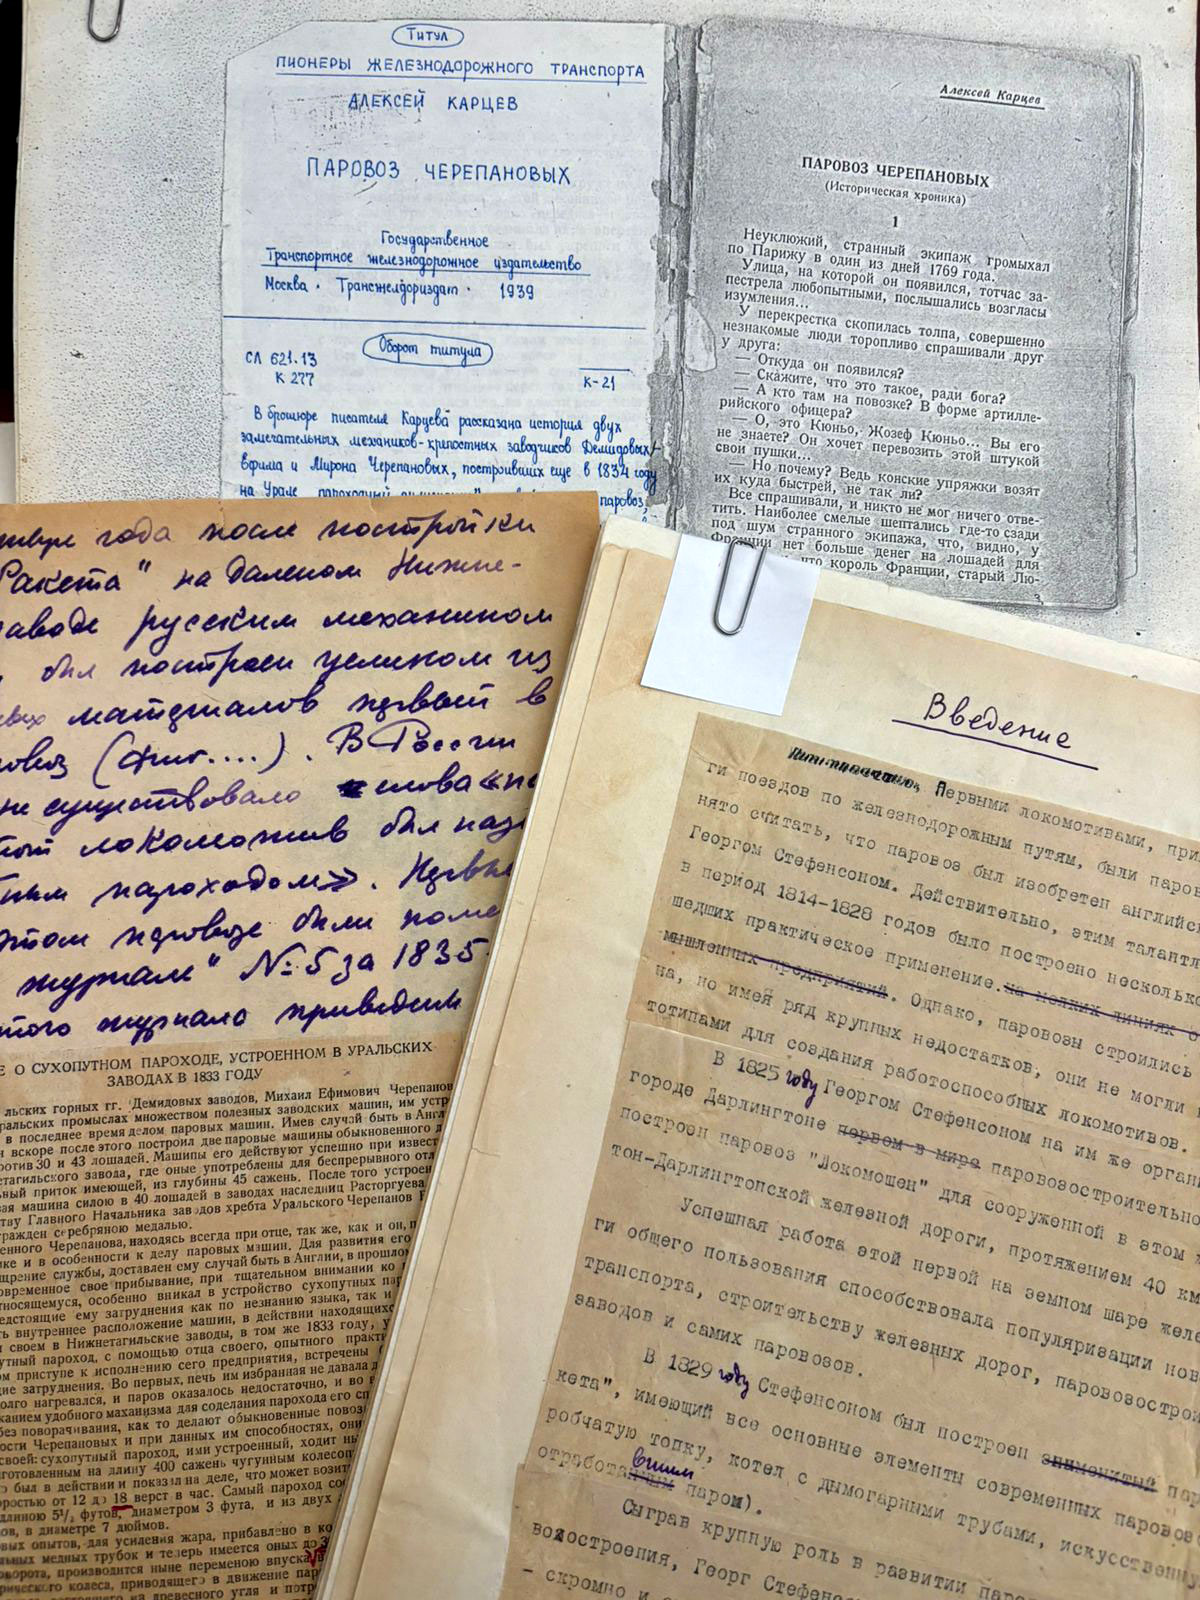 Титул
ПИОНЕРЫ ЖЕЛЕЗНОДОРОЖНОГО ТРАНСПОРТА
АЛЕКСЕЙ КАРЦЕВ
ПАРОВОЗ ЧЕРЕПАНОВЫХ
Государственное
Транспортное железнодорожное издательство
Москва · Трансжелдориздат · 1939
Оборот титула
СЛ 621.13
К 277
К-21
В брошюре писателя Карцева рассказана история двух
замечательных механиков-крепостных заводчиков Демидовых,
Ефима и Мирона Черепановых, построивших еще в 1834 году
на Урале пароходный паровоз,
Алексей Карцев
ПАРОВОЗ ЧЕРЕПАНОВЫХ
(Историческая хроника)
1
Неуклюжий, странный экипаж громыхал
по Парижу в один из дней 1769 года.
Улица, на которой он появился, тотчас за-
пестрела любопытными, послышались возгласы
изумления...
У перекрестка скопилась толпа, совершенно
незнакомые люди торопливо спрашивали друг
у друга:
— Откуда он появился?
— Скажите, что это такое, ради бога?
— А кто там на повозке? В форме артилле-
рийского офицера?
— О, это Кюньо, Жозеф Кюньо... Вы его
не знаете? Он хочет перевозить этой штукой
свои пушки...
— Но почему? Ведь конские упряжки возят
их куда быстрей, не так ли?
Все спрашивали, и никто не мог ничего отве-
тить. Наиболее смелые шептались где-то сзади
под шум странного экипажа, что, видно, у
Франции нет больше денег на лошадей для
что король Франции, старый Лю-
3
года после постройки
Ракета" на далеком Нижне-
заводе русским механиком
был построен целиком из
материалов первый в
(фиг....). В России
не существовало слова «па
локомотив был наз
пароходом». Первые
этом паровозе были поме
журнале" № 5 за 1835
этого журнала приводим
Е О СУХОПУТНОМ ПАРОХОДЕ, УСТРОЕННОМ В УРАЛЬСКИХ
ЗАВОДАХ В 1833 ГОДУ
льских горных гг. Демидовых заводов, Михаил Ефимович Черепанов
ральских промыслах множеством полезных заводских машин, им устр
в последнее время делом паровых машин. Имев случай быть в Англ
н вскоре после этого построил две паровые машины обыкновенного д
ротив 30 и 43 лошадей. Машины его действуют успешно при извест
етагильского завода, где оные употреблены для беспрерывного отл
ьный приток имеющей, из глубины 45 сажень. После того устроен
вая машина силою в 40 лошадей в заводах наследниц Расторгуева
тву Главного Начальника заводов хребта Уральского Черепанов
гражден серебряною медалью.
енного Черепанова, находясь всегда при отце, так же, как и он, п
ике и в особенности к делу паровых машин. Для развития его
щрение службы, доставлен ему случай быть в Англии, в прошлом
овременное свое прибывание, при тщательном внимании ко
тносящемуся, особенно вникал в устройство сухопутных пар
едстоящие ему затруднения как по незнанию языка, так и
ть внутреннее расположение машин, в действии находящихс
и своем в Нижнетагильские заводы, в том же 1833 году, у
утный пароход, с помощью отца своего, опытного практи
ом приступе к исполнению сего предприятия, встречены
ие затруднения. Во первых, печь им избранная не давала д
олго нагревался, и паров оказалось недостаточно, и во в
канием удобного маханизма для соделания парохода его сп
без поворачивания, как то делают обыкновенные повоз
ости Черепановых и при данных им способностях, они
своей: сухопутный пароход, ими устроенный, ходит ны
зготовленным на длину 400 сажень чугунным колесоп
был в действии и показал на деле, что может возит
оростью от 12 до 18 верст в час. Самый пароход сос
длиною 5½ футов, диаметром 3 фута, и из двух
ов, в диаметре 7 дюймов.
вых опытов, для усиления жара, прибавлено в ко
льных медных трубок и теперь имеется оных до
оворота, производится ныне переменою впуска
рического колеса, приводящего в движение пар
древесного угля и потр
Введение
Первыми локомотивами, при
ги поездов по железнодорожным путям, были паров
нято считать, что паровоз был изобретен английск
Георгом Стефенсоном. Действительно, этим талантл
в период 1814-1828 годов было построено несколько
шедших практическое применение. на мелких линиях
мышленных предприятий. Однако, паровозы строились
на, но имея ряд крупных недостатков, они не могли
тотипами для создания работоспособных локомотивов.
В 1825 году Георгом Стефенсоном на им же органи
городе Дарлингтоне первом в мире паровозостроительно
построен паровоз "Локомошен" для сооруженной в этом
тон-Дарлингтонской железной дороги, протяжением 40 км
Успешная работа этой первой на земном шаре желе
ги общего пользования способствовала популяризации нов
транспорта, строительству железных дорог, паровозострои
заводов и самих паровозов.
В 1829 году Стефенсоном был построен знаменитый пар
кета", имеющий все основные элементы современных паровоз
робчатую топку, котел с дымогарными трубами, искусственну
отработавшим паром).
Сыграв крупную роль в развитии паро
возостроения, Георг Стефенс
- скромно и